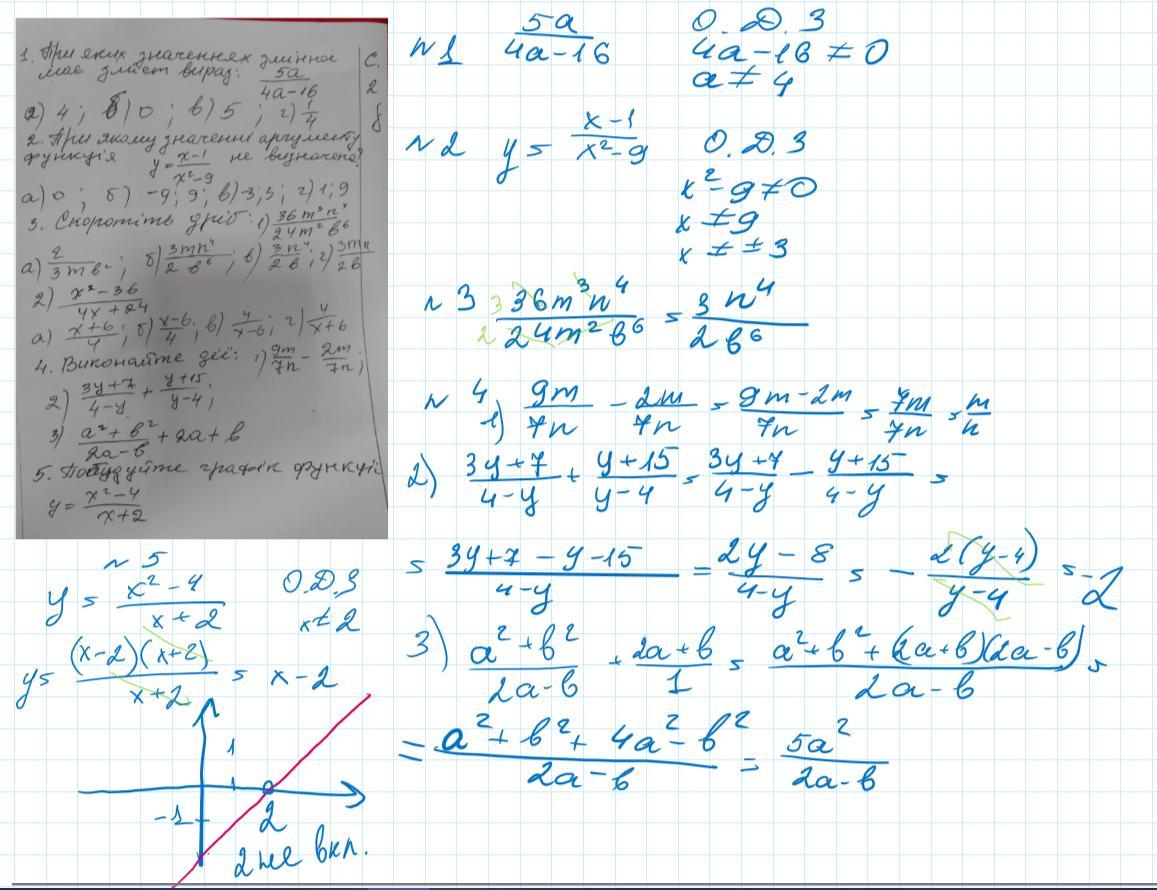 1. При яких значеннях змінної
має зміст вираз: 5a/(4a-16)
а) 4; б) 0; в) 5; г) 1/4
2. При якому значенні аргументу
функція y = (x-1)/(x²-9) не визначена?
а) 0; б) -9; 9; в) -3; 3; г) 1; 9
3. Скоротіть дріб: 1) 36m³n⁴/24m²b⁶
а) 2/3mb²; б) 3mn⁴/2b⁶; в) 3n⁴/2b; г) 3mn/2b
2) (x²-36)/(4x+24)
а) (x+6)/4; б) (x-6)/4; в) 4/(x-6); г) 4/(x+6)
4. Виконайте дії: 1) 9m/7n - 2m/7n;
2) (3y+7)/(4-y) + (y+15)/(y-4);
3) (a²+b²)/(2a-b) + 2a+b
5. Побудуйте графік функції
y = (x²-4)/(x+2)
С.
2
№1 5a/(4a-16) О.Д.З
4a-16≠0
a≠4
№2 y = (x-1)/(x²-9) О.Д.З
x²-9≠0
x≠9
x≠±3
№3 3 36m³n⁴/2 24m²b⁶ = 3n⁴/2b⁶
№4
1) 9m/7n - 2m/7n = (9m-2m)/7n = 7m/7n = m/n
2) (3y+7)/(4-y) + (y+15)/(y-4) = (3y+7)/(4-y) - (y+15)/(4-y) =
= (3y+7-y-15)/(4-y) = (2y-8)/(4-y) = - 2(y-4)/(y-4) = -2
3) (a²+b²)/(2a-b) + (2a+b)/1 = (a²+b²+(2a+b)(2a-b))/(2a-b) =
= (a²+b²+4a²-b²)/(2a-b) = 5a²/(2a-b)
№5
y = (x²-4)/(x+2) О.Д.З
x≠2
y = (x-2)(x+2)/(x+2) = x-2
1
1
-1
2
2 не вкл.